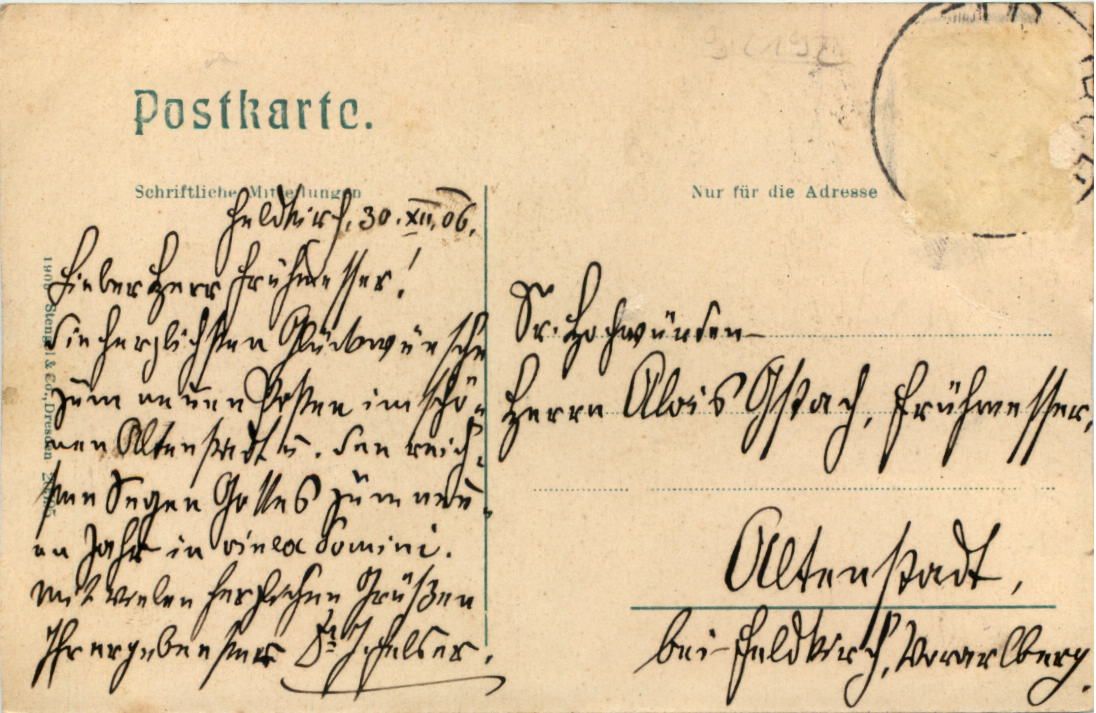 Postkarte.
Schriftliche Mitteilungen
Nur für die Adresse
Feldkirch, 30. XII. 06.
Lieber Herr Frühmesser!
Die herzlichsten Glückwünsche
zum neuen Posten im schö-
nen Altenstadt u. den reich-
sten Segen Gottes zum neu-
en Jahr in vinea Domini.
Mit vielen herzlichen Grüßen
Ihr ergebenster
Sr. Hochwürden
Herrn Alois Gstach, Frühmesser,
Altenstadt,
bei Feldkirch, Vorarlberg.
Stengel & Co., Dresden